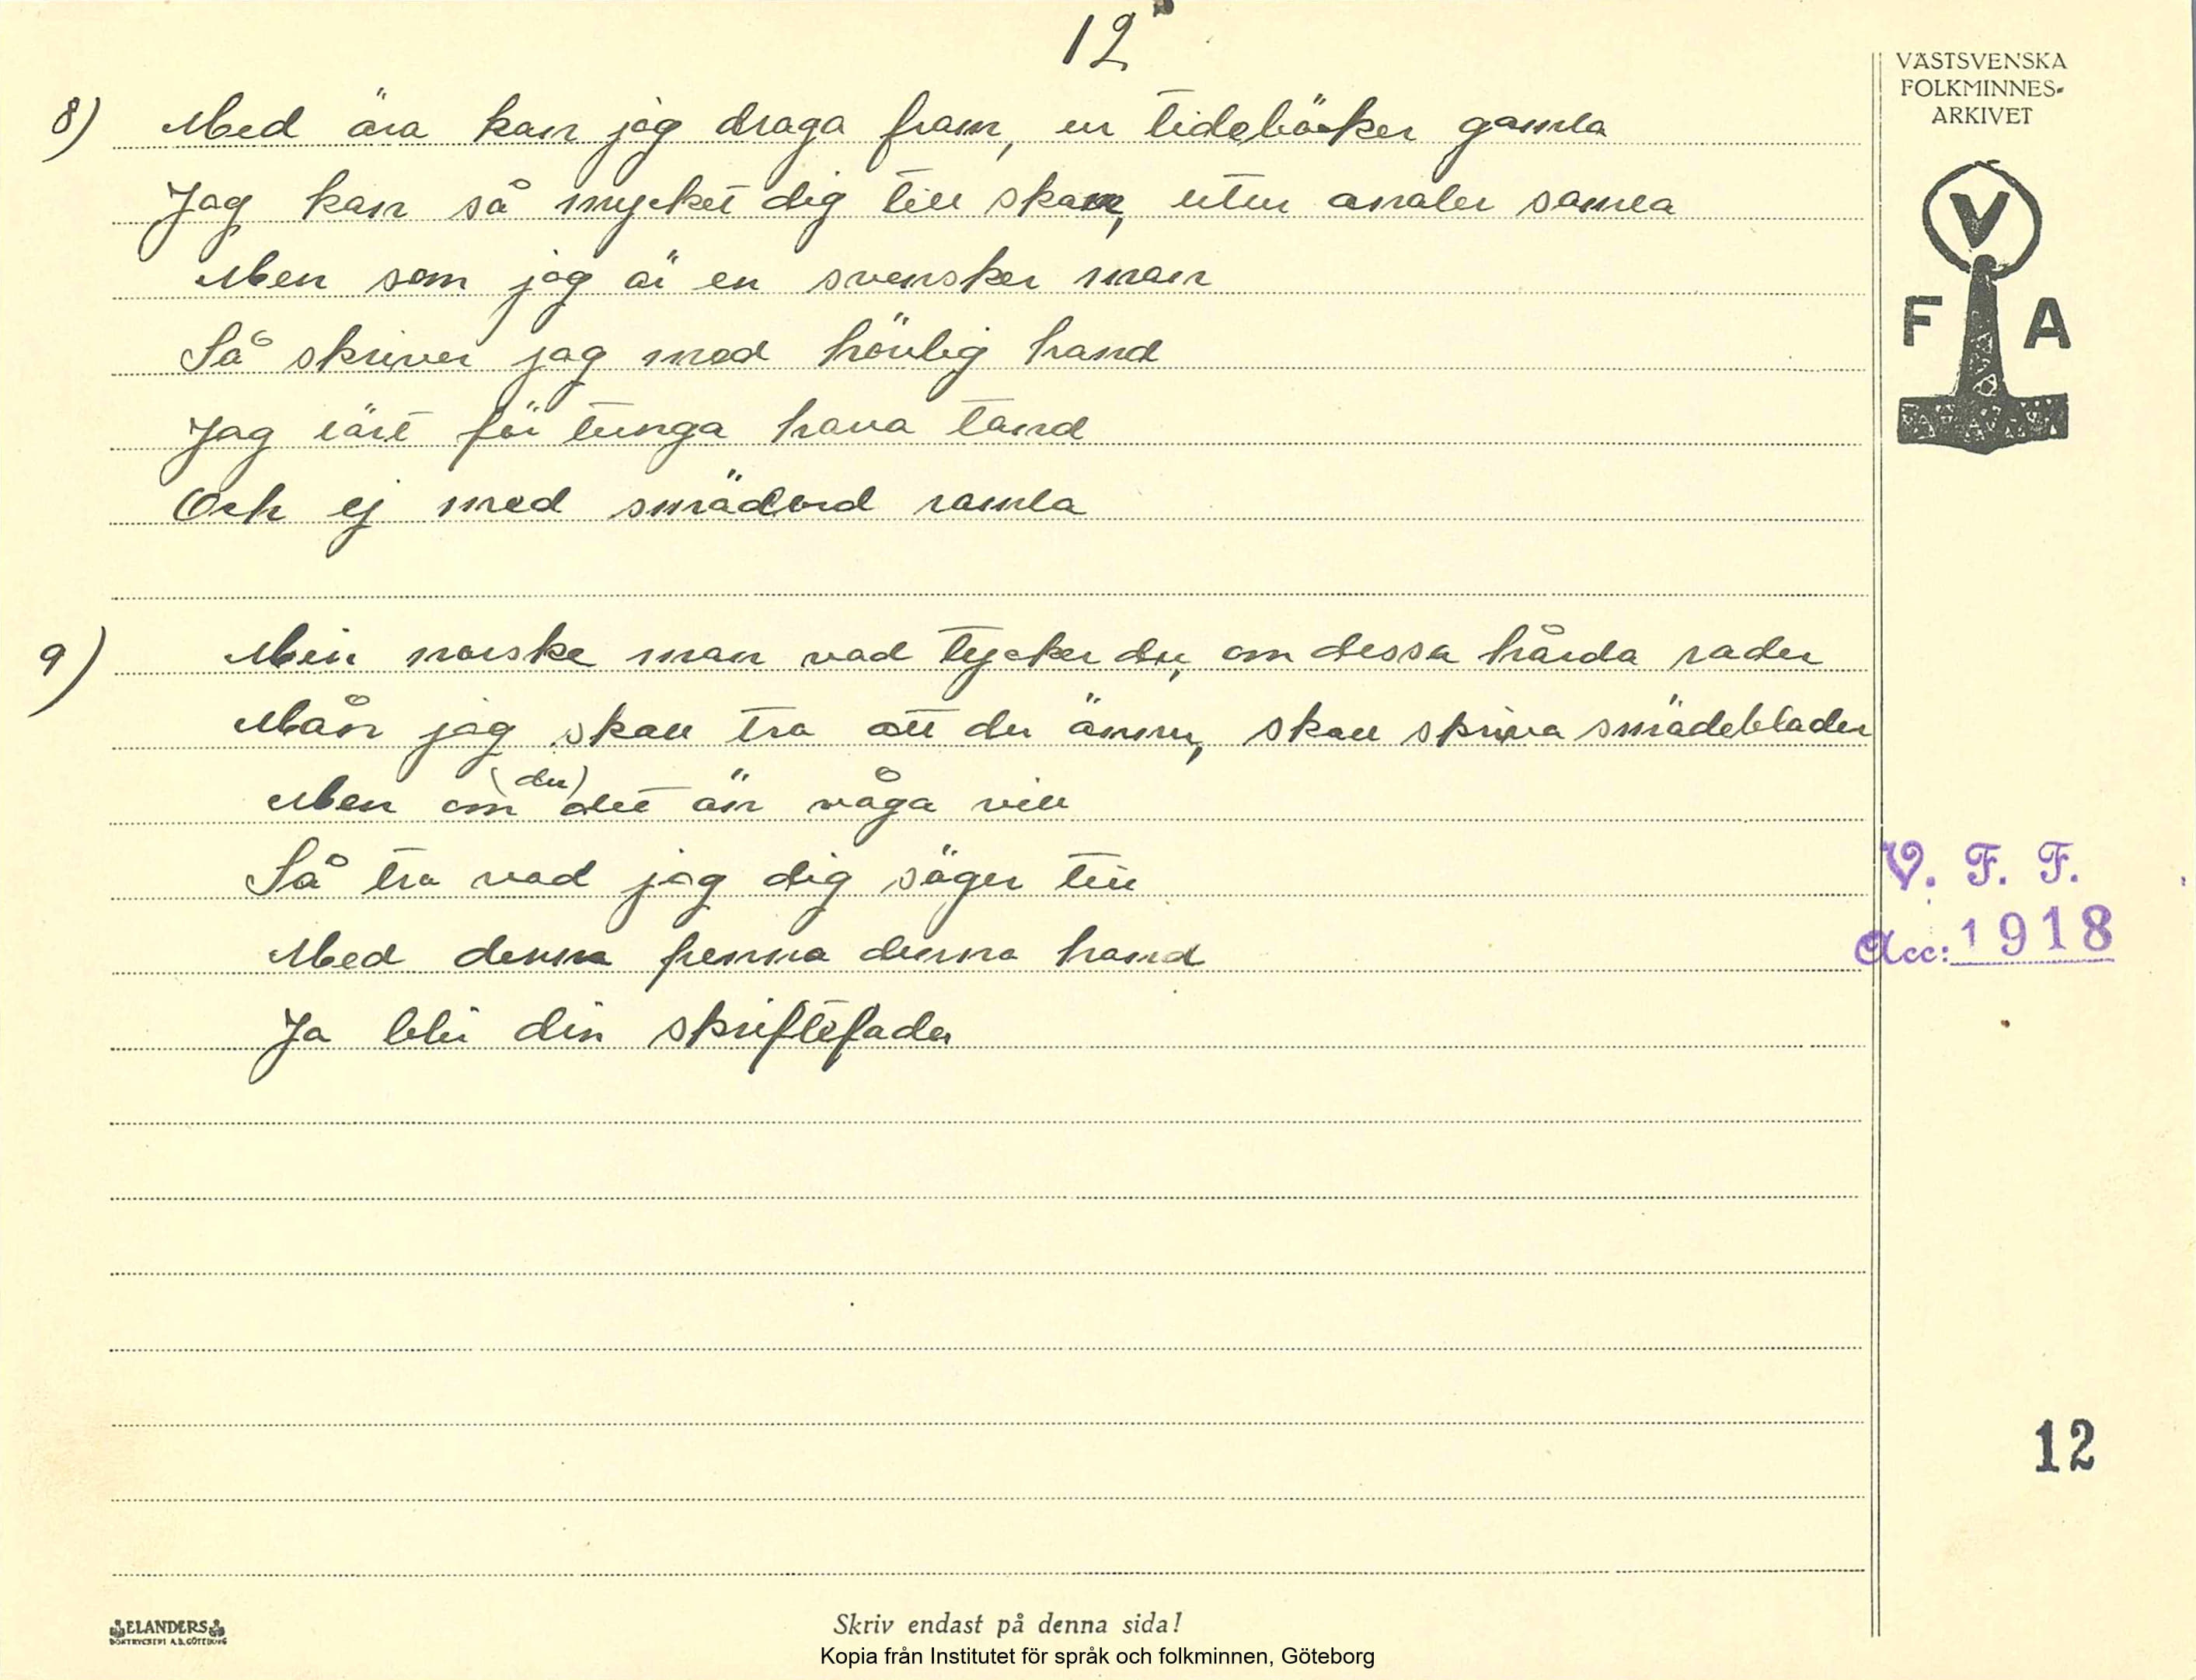 12
8) Med ära kan jag draga fram, ur tideböcker gamla
Jag kan så mycket dig till skam, utur analer samla
Men som jag är en svensker man
Så skriver jag med hövlig hand
Jag lärt för tunga hava tand
Och ej med smädord ramla
9) Min norske man vad tycker du, om dessa hårda rader
Mån jag skall tro att du ännu, skall skriva smädeblader
Men om (du) det än våga vill
Så tro vad jag dig säger till
Med denna penna denna hand
Ja blir din skriftefader
VÄSTSVENSKA
FOLKMINNES-
ARKIVET
V
F A
V. F. F.
Acc: 1918
12
ELANDERS
BOKTRYCKERI A.B. GÖTEBORG
Skriv endast på denna sida!
Kopia från Institutet för språk och folkminnen, Göteborg